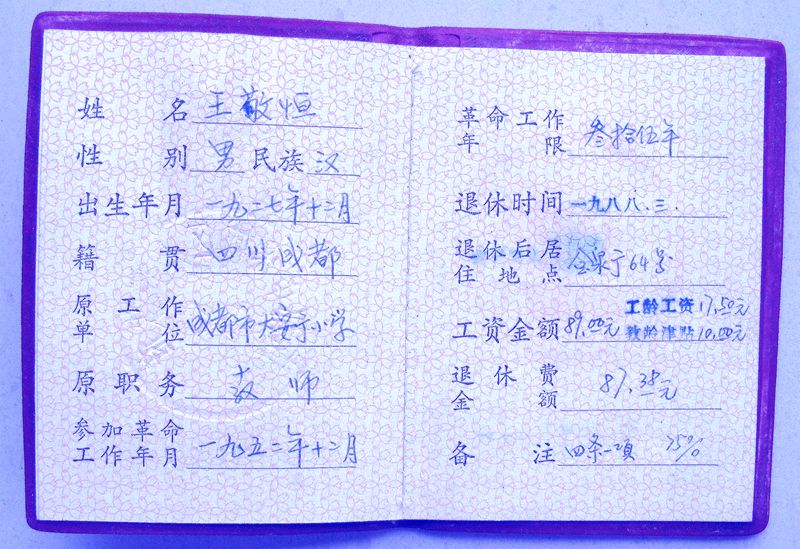 姓名 王敬恒
性别 男 民族 汉
出生年月 一九二七年十二月
籍贯 四川成都
原工作单位 成都市大安亍小学
原职务 教师
参加革命工作年月 一九五二年十二月
革命工作年限 叁拾伍年
退休时间 一九八八.三.
退休后居住地点 亍64号
工资金额 89.00元 工龄工资17.50元
教龄津贴10.00元
退休费金额 87.38元
备注 四条一项 75%